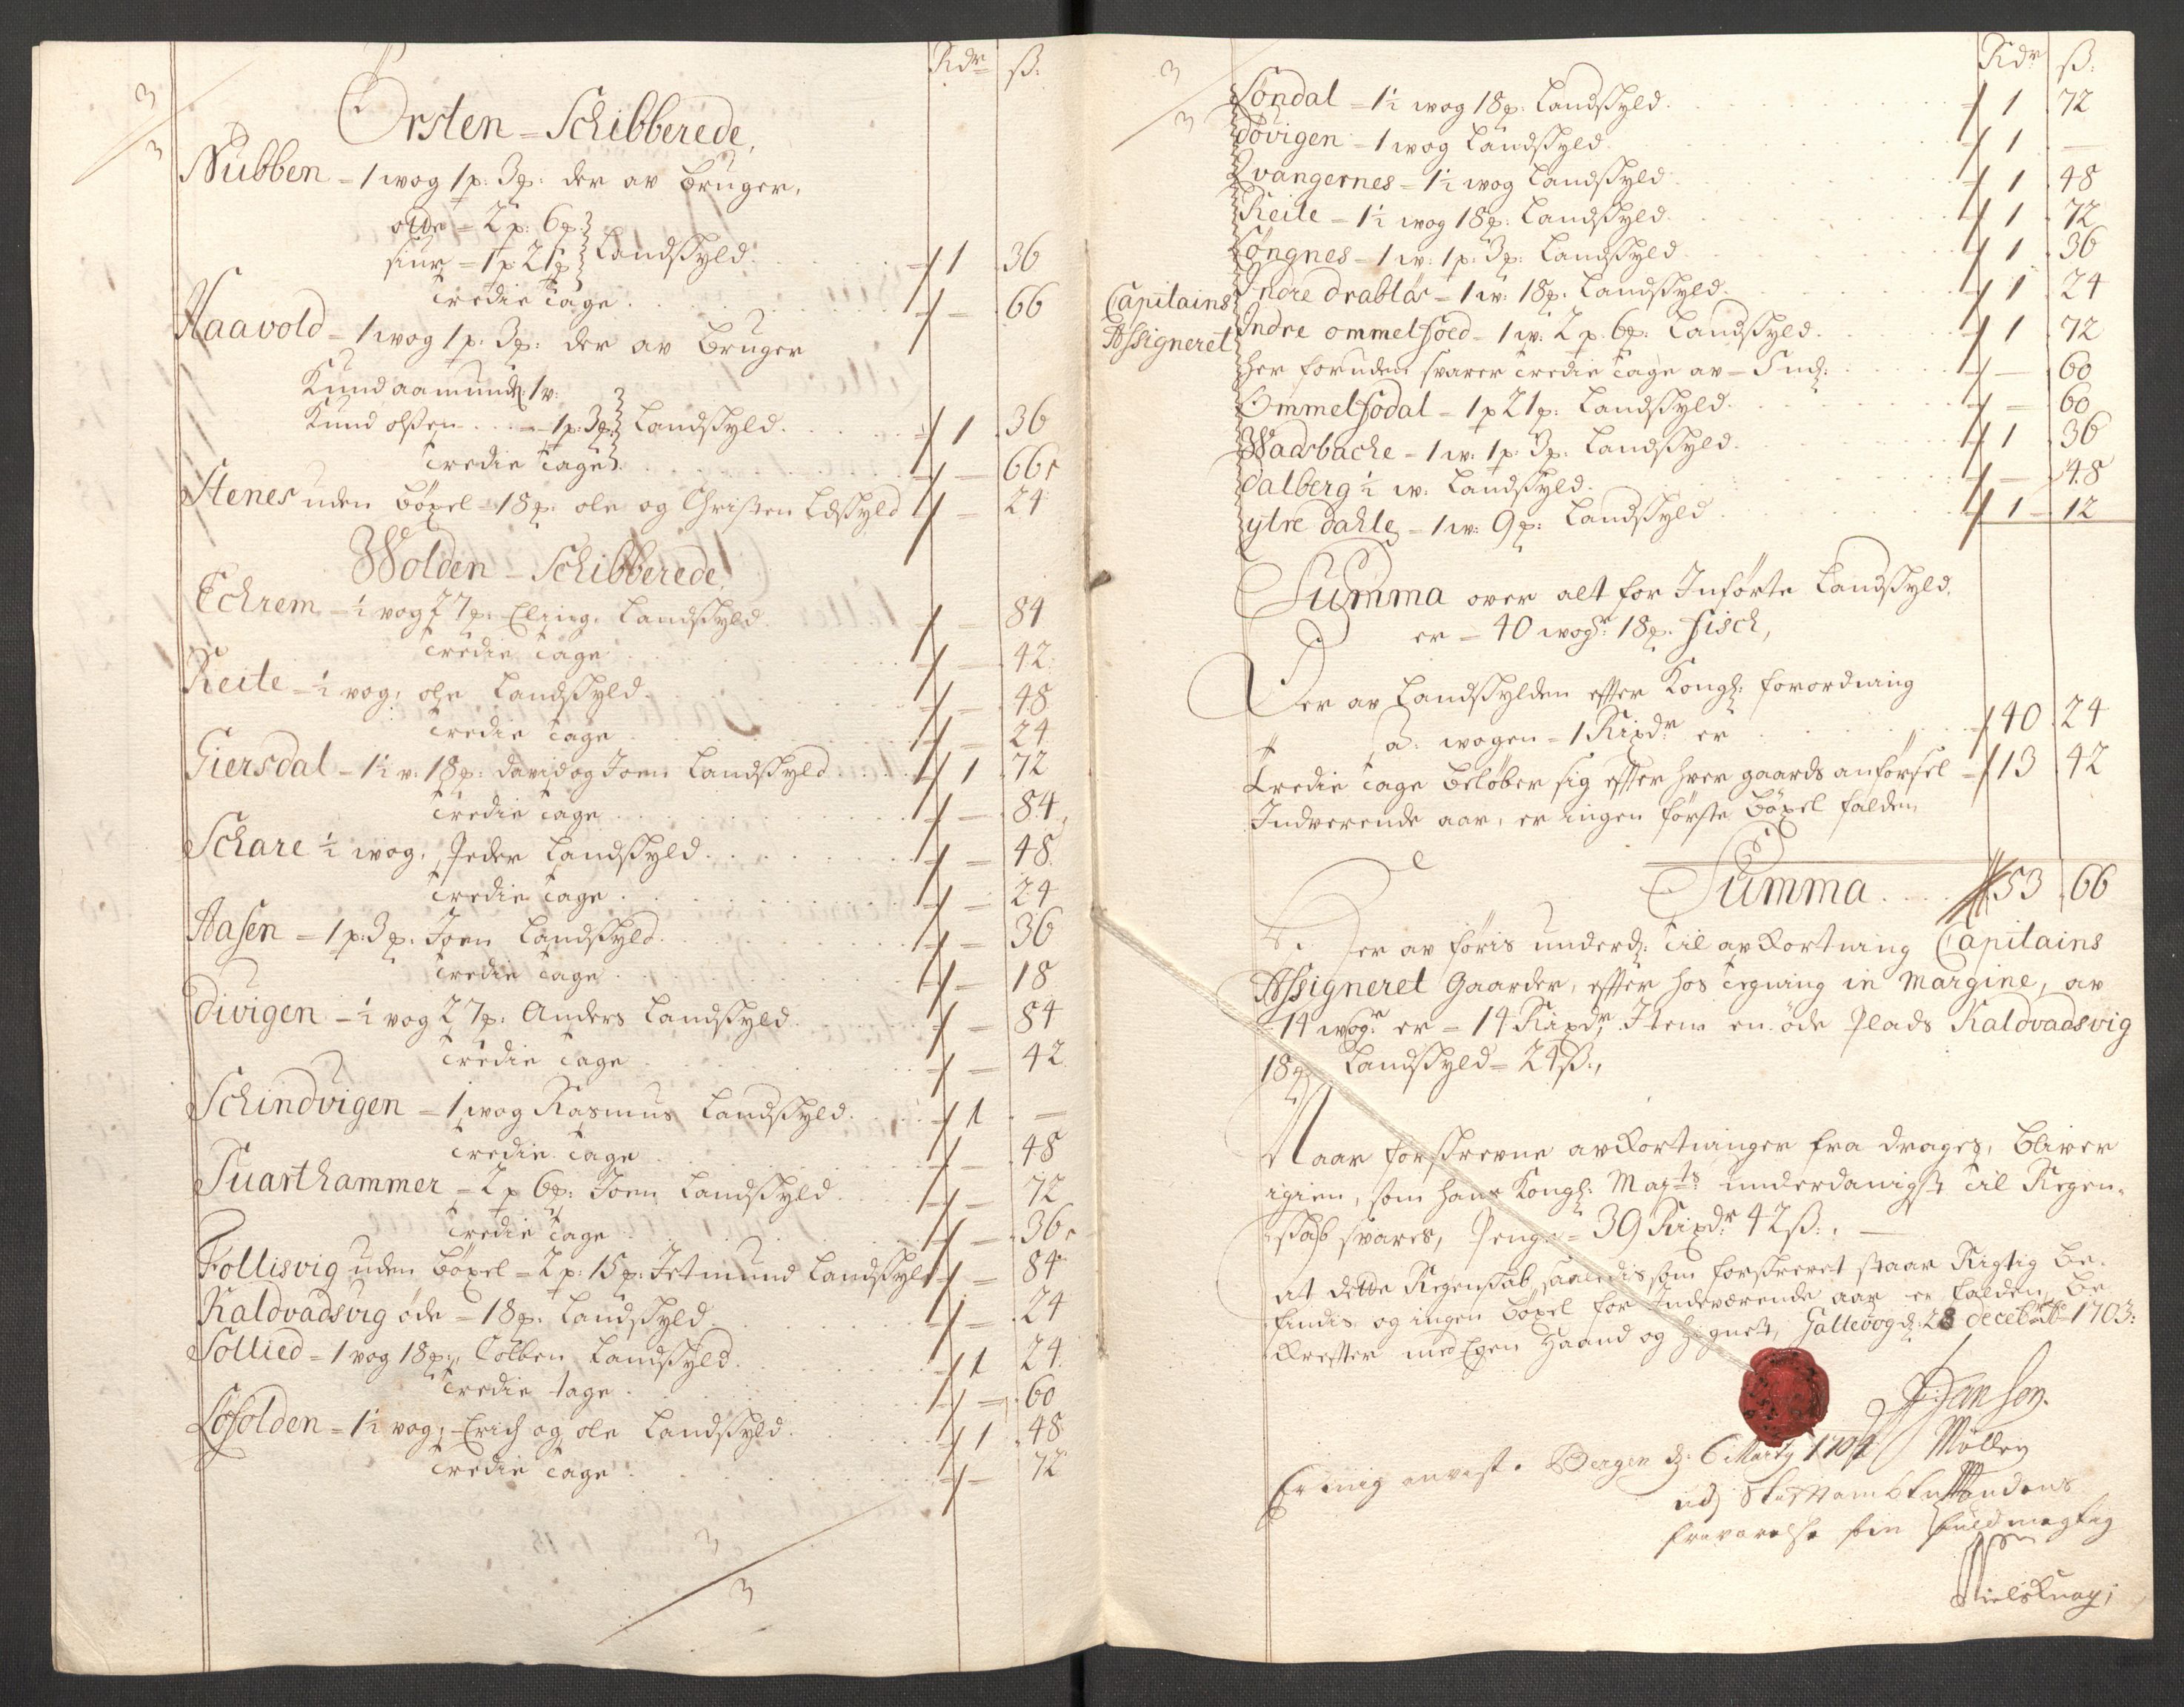 Rdr ß:
Ørsten - Schibberede,
Nubben - 1 wog 1 p: 3 p: der av bruger,
olle = 2 p: 6 p:
siur = 1 p 21 p Landskyld. 1 36
tredie tage 66
Haavold - 1 wog 1 p: 3 p: der av bruger
Knud aamunds: 1 v:
Knud olssen 1 p: 3 p: Landskyld. 1 36
tredie tage 66
Stenes uden böxel - 18 p: ole og Christen Ldskyld 24
Wolden - Schibberede,
Echrem - ½ vog 27 p: Elling, Landskyld. 84
tredie tage 42
Reite - ½ vog; ole Landskyld. 48
tredie tage 24
Giersdal - 1½ v: 18 p: david og Joen Landskyld 1 72
tredie tage 84
Schare ½ wog, Peder Landskyld. 48
tredie tage 24
Aasen - 1 p: 3 p: Joen Landskyld. 36
tredie tage 18
Divigen - ½ vog 27 p: Anders Landskyld 84
tredie tage 42
Schindvigen = 1 wog Rasmus Landskyld. 1 —
tredie tage 48
Suarthammer - 2 p 6 p: Joen Landskyld 72
tredie tage 36
Follisvig uden böxel - 2 p: 15 p: Jetmund Landskyld 84
Kaldvadsvig öde - 18 p: Landskyld 24
Sollied = 1 vog 18 p:, Colben Landskyld. 1 24
tredie tage 60
Löfolden = 1½ vog; Erich og ole Landskyld. 1 48
tredie tage 72
3
3
Rdr ß:
Söndal - 1½ wog 18 p: Landskyld. 1 72
Dövigen - 1 wog Landskyld 1 —
Qvangernes - 1½ wog Landskyld 1 48
Reite - 1½ wog 18 p: Landskyld 1 72
Löngnes - 1 w: 1 p: 3 p: Landskyld 1 36
Capitains Indre drablös - 1 w: 18 p: Landskyld 1 24
Assigneret Indre ommelsoed - 1 w: 2 p: 6 p: Landskyld. 1 72
her foruden svarer tredie tage av 60
Ommelsodal - 1 p 21 p: Landskyld 60
Wadsbache - 1 w: 1 p: 3 p: Landskyld 1 36
dalberg ½ w: Landskyld 48
ytre dahle - 1 w: 9 p: Landskyld 1 12
Summa over alt for Inførte Landskyld,
er = 40 wogr: 18 p. fisch,
Der av Landskylden efter Kongl: forordning
a: wogen = 1 Rixdr er 40 24
Tredie tage beløber sig efter hver gaards anførsel 13 42
Indverende aar, er ingen første böxel falden
Summa 53 66
Der av føris underd: til avkortning Capitains
Assigneret Gaarder, efter hos tegning in Margine, av
14 wogr er = 14 Rixdr, Item en öde Plads Kaldvadsvig
18 p Landskyld = 24 ß:,
Naar forskrevne avkortninger fra drages, bliver
igien, som hans Kongl: Mayts underdanigst til Regen-
skab svares, Penge = 39 Rixdr 42 ß:.
at dette Regenskab saaledis som forskrevet staar Rigtig be-
findis og ingen böxel for Indeværende aar er falden, be-
krefter med Egen Haand og Signet, Gallevog d: 28 decembr 1703:
J. Jansen.
Er mig anvist. Bergen d: 6 Marty 1704
fraværelse sin fuldmegtig
Niels Knag;